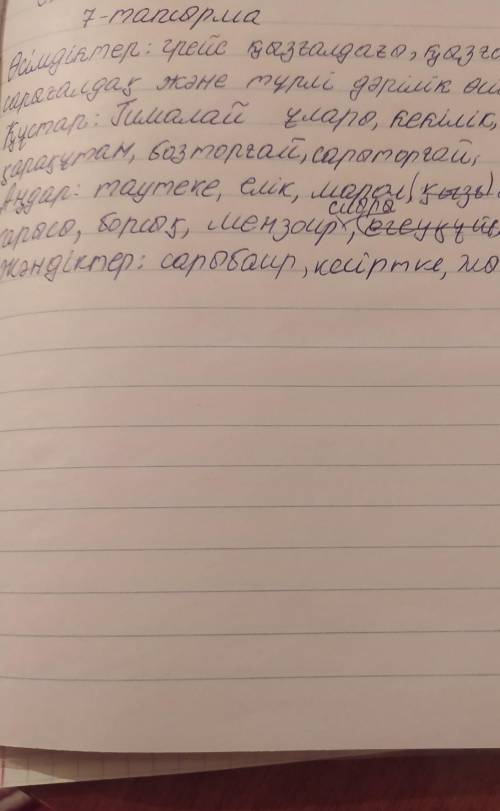 7-тапсырма
Өсімдіктер: грейс қызғалдағы, қызғ
сарығалдақ және түрлі дәрілік өсі
Құстар: Гималай ұлары, кекілік,
қарақұтан, бозторғай, сарыторғай,
Аңдар: таутеке, елік, марал, (қызы)
сібір
борсық, мензбир, 
Жәндіктер: сарыбаир, кесіртке, жы